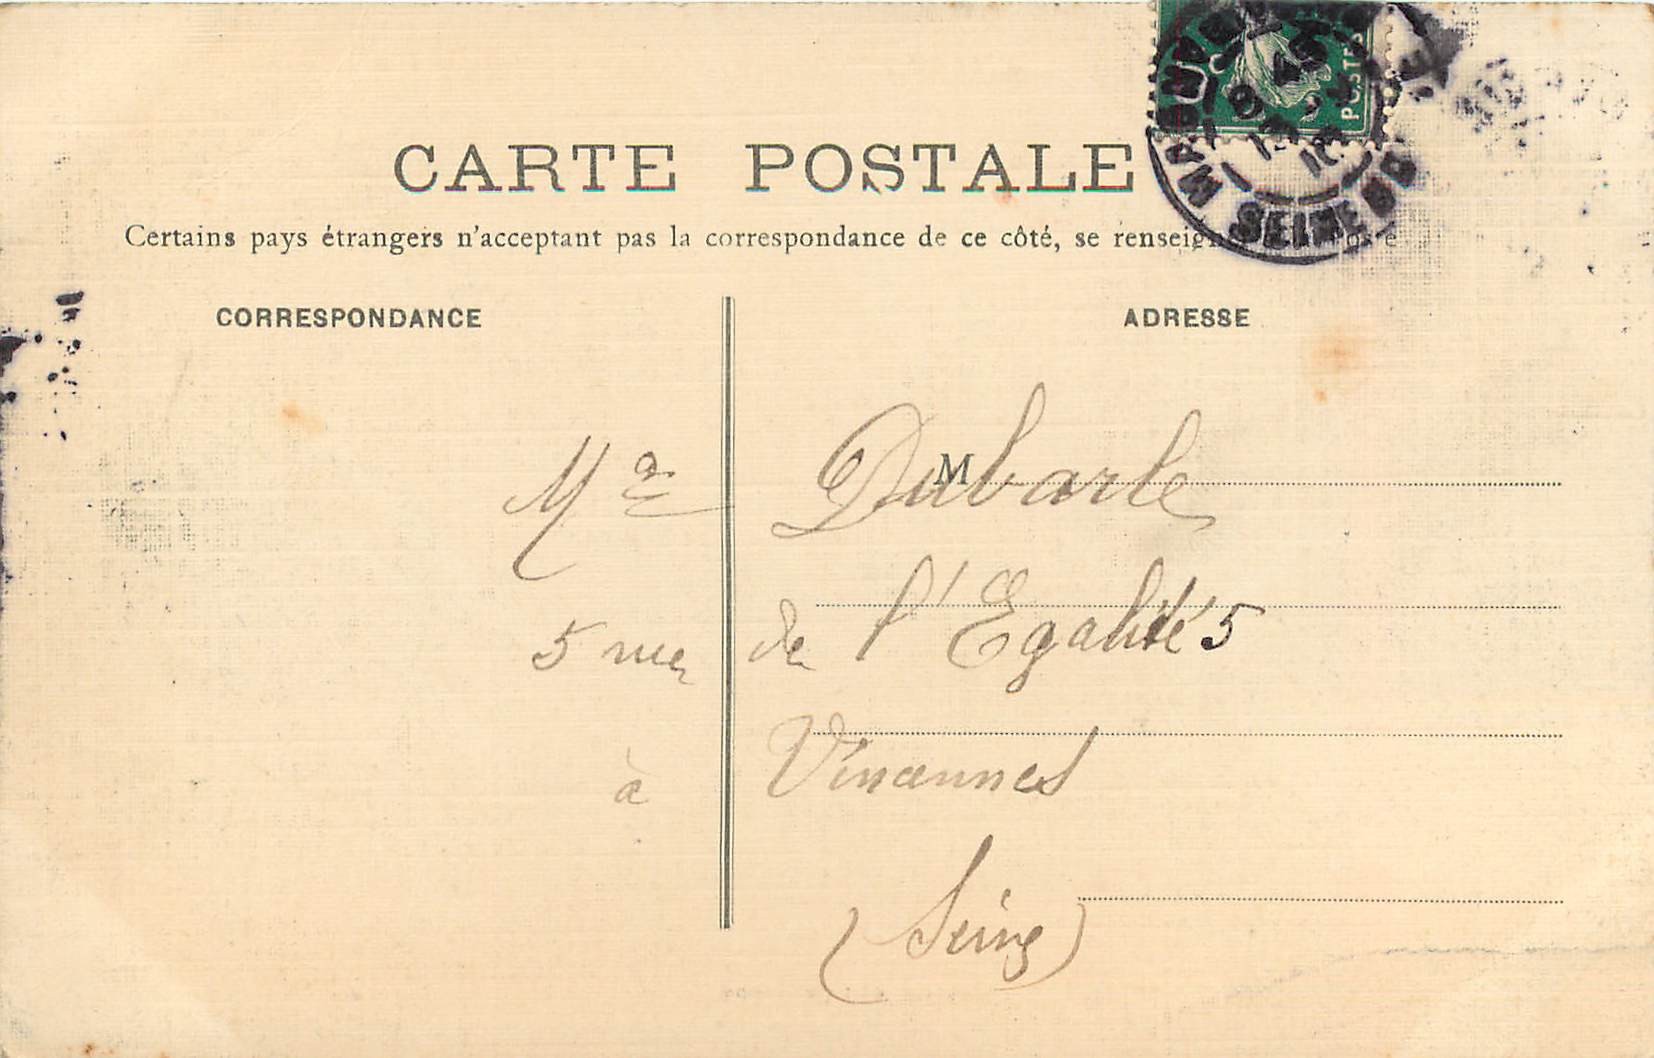 POSTES
CARTE POSTALE
Certains pays étrangers n'acceptant pas la correspondance de ce côté, se renseig
SEINE
CORRESPONDANCE
ADRESSE
M
Dubarle
5 rue de l'Egalité 5
à Vincennes
(Seine)